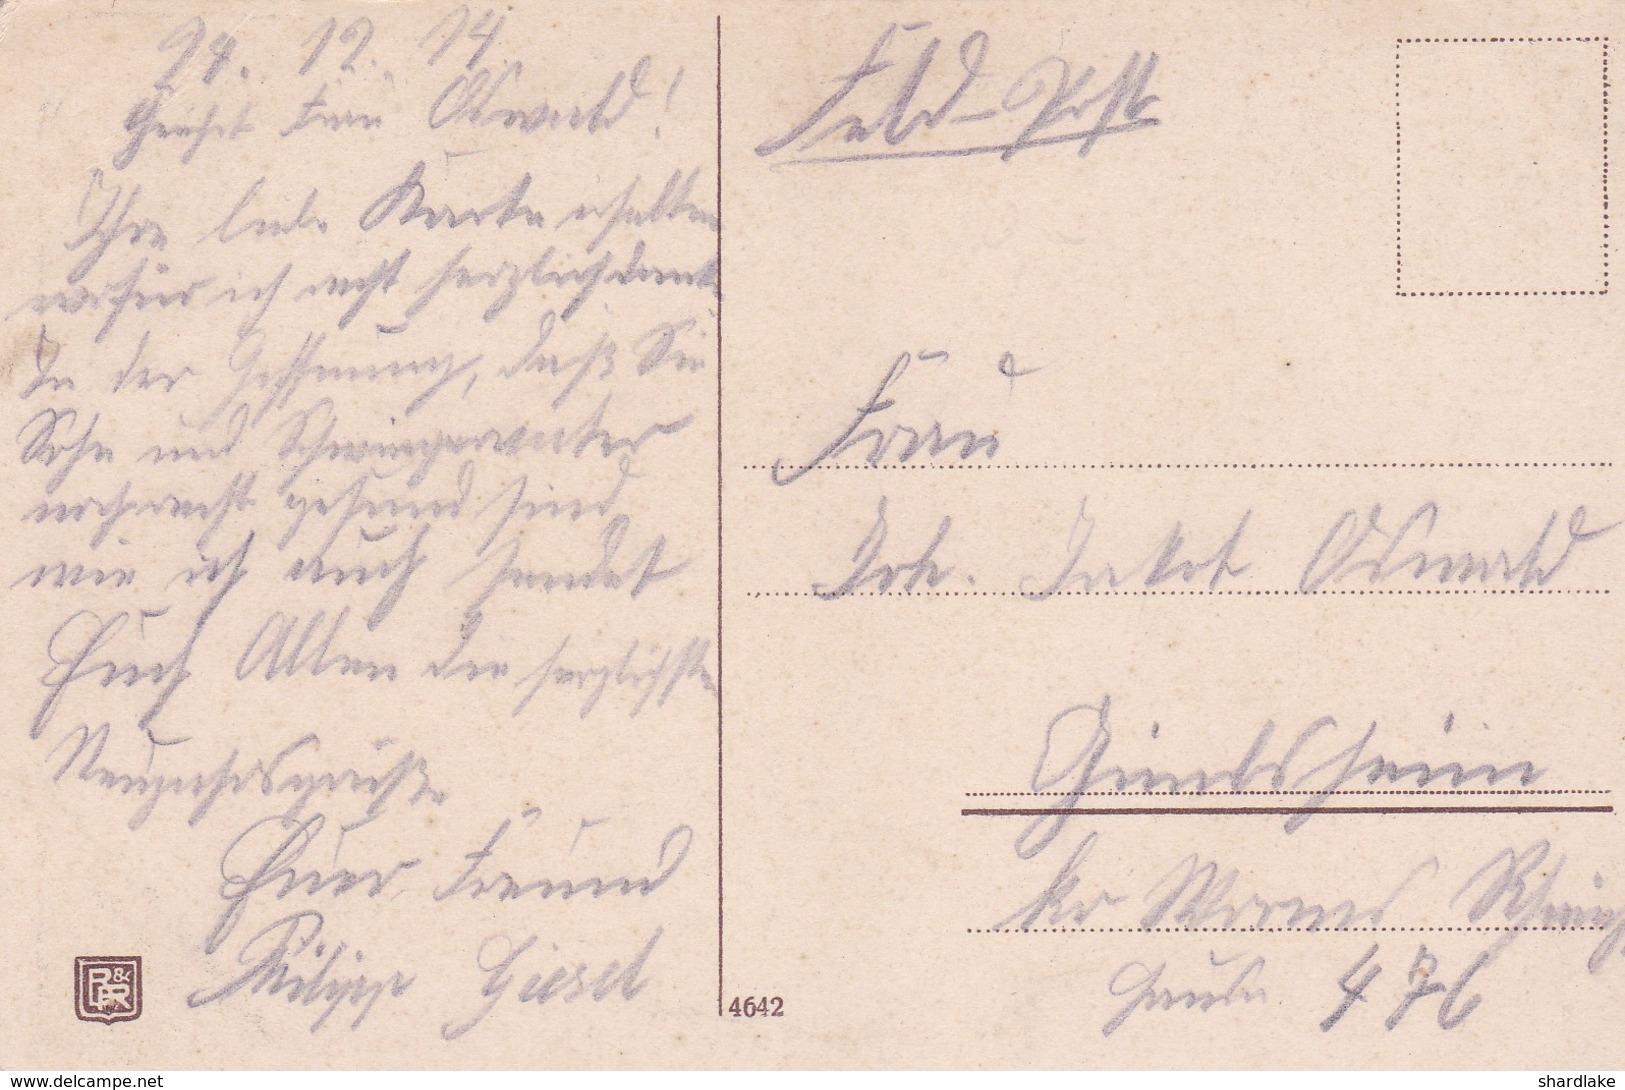 29. 12. 14
Geehrt Frau Oswald!
Ihre liebe Karte erhalten
wofür ich recht herzlich danke
In der Hoffnung, daß Sie
Sohn und Schwiegervater
noch recht gesund sind
wie ich auch sendet
Euch Allen die herzlichsten
Neujahrsgrüße
Euer Freund
Philipp Giesel
P R & R
4642
Feld-Post
Frau
Joh. Jakob Oswald
Gimbsheim
Kr Worms Rheinh.
476
www.delcampe.net
shardlake